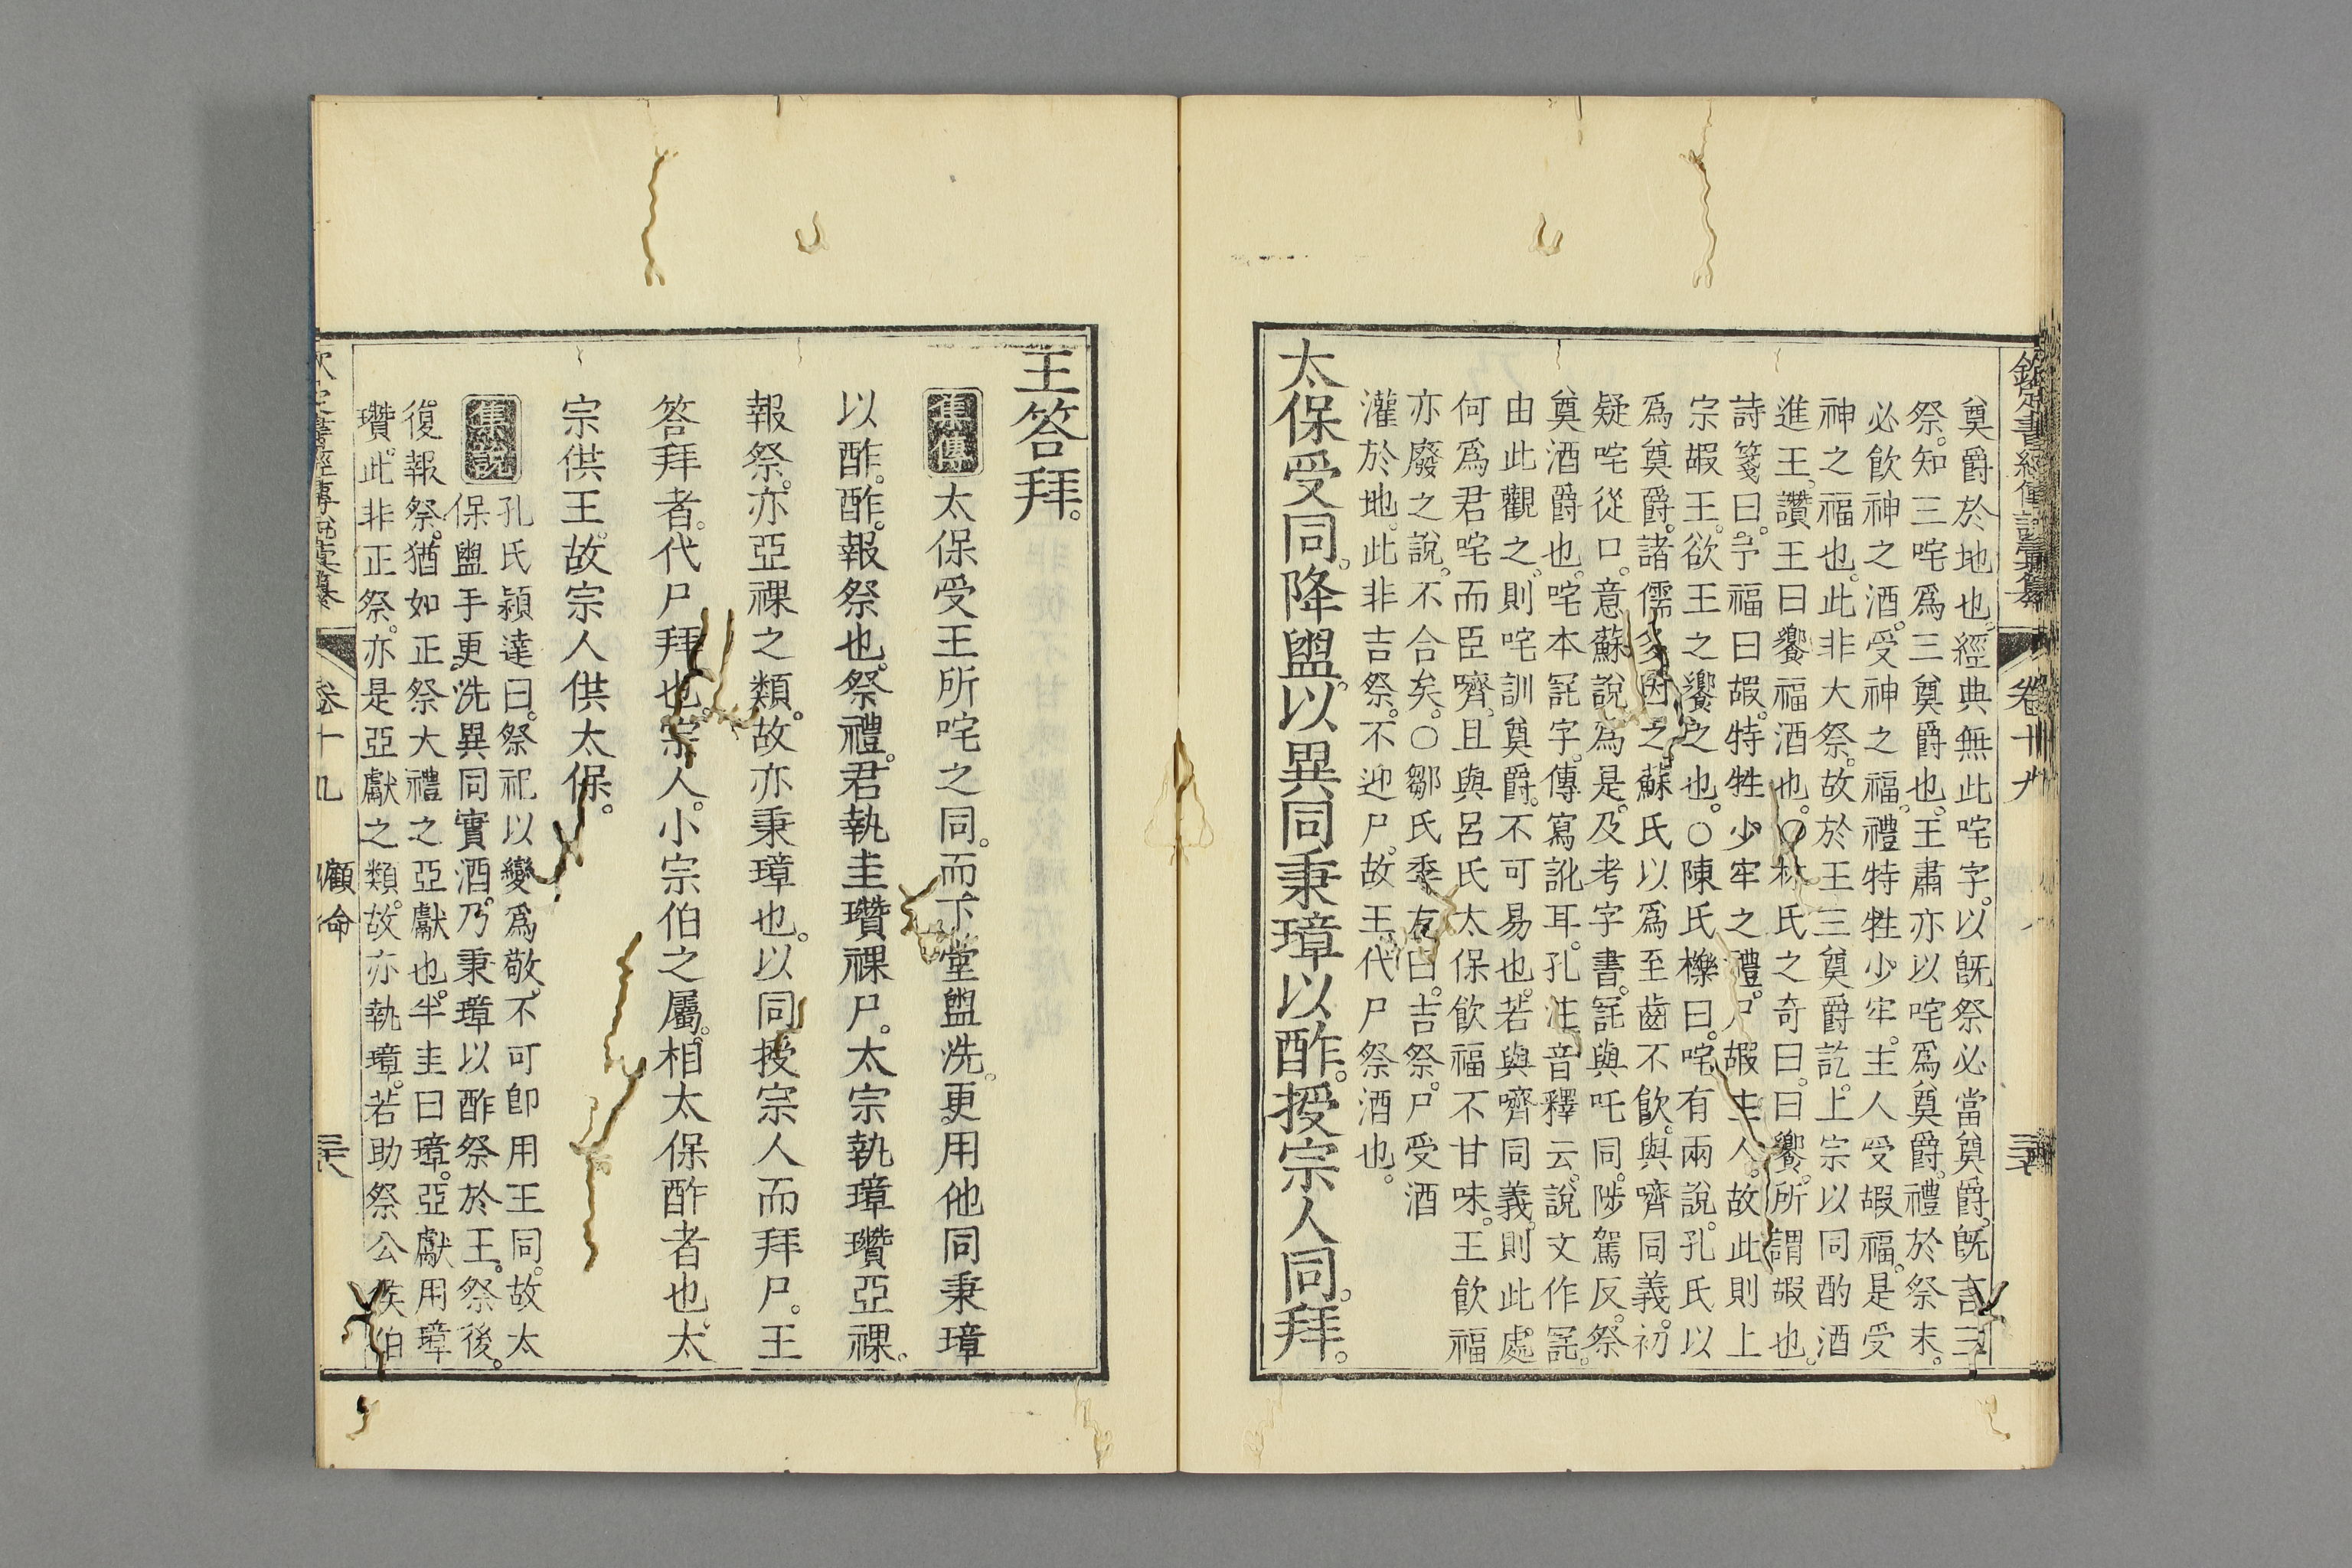 欽定書經傳說彙纂 卷十九
奠爵於地也。經典無此咤字。以旣祭必當奠爵。旣言三
祭。知三咤爲三奠爵也。王肅亦以咤爲奠爵。禮於祭末。
必飮神之酒。受神之福。禮特牲少牢。主人受嘏福。是受
神之福也。此非大祭。故於王三奠爵訖。上宗以同酌酒
進王。讚王曰饗福酒也。○林氏之奇曰。曰饗。所謂嘏也。
詩箋曰。予福曰嘏。特牲少牢之禮。尸嘏主人。故此則上
宗嘏王。欲王之饗之也。○陳氏櫟曰。咤有兩說。孔氏以
爲奠爵。諸儒多因之。蘇氏以爲至齒不飮。與嚌同義。初
疑咤從口。意蘇說爲是。及考字書。䛔與吒同。陟駕反。祭
奠酒爵也。咤本䛔字。傳寫訛耳。孔注音釋云。說文作䛔。
由此觀之。則咤訓奠爵。不可易也。若與嚌同義。則此處
何爲君咤而臣嚌。且與呂氏太保飮福不甘味。王飮福
亦廢之說。不合矣。○鄒氏季友曰。吉祭。尸受酒
灌於地。此非吉祭。不迎尸。故王代尸祭酒也。
太保受同。降盥。以異同秉璋以酢。授宗人同。拜。
王答拜。
集傳 太保受王所咤之同。而下堂盥洗。更用他同秉璋
以酢。酢。報祭也。祭禮。君執圭瓚祼尸。太宗執璋瓚亞祼。
報祭。亦亞祼之類。故亦秉璋也。以同授宗人而拜尸。王
答拜者。代尸拜也。宗人。小宗伯之屬。相太保酢者也。太
宗供王。故宗人供太保。
集說 孔氏穎達曰。祭祀以變爲敬。不可卽用王同。故太
保盥手更洗異同實酒。乃秉璋以酢祭於王。祭後。
復報祭。猶如正祭大禮之亞獻也。半圭曰璋。亞獻用璋
瓚。此非正祭。亦是亞獻之類。故亦執璋。若助祭公侯伯
卷十九 顧命